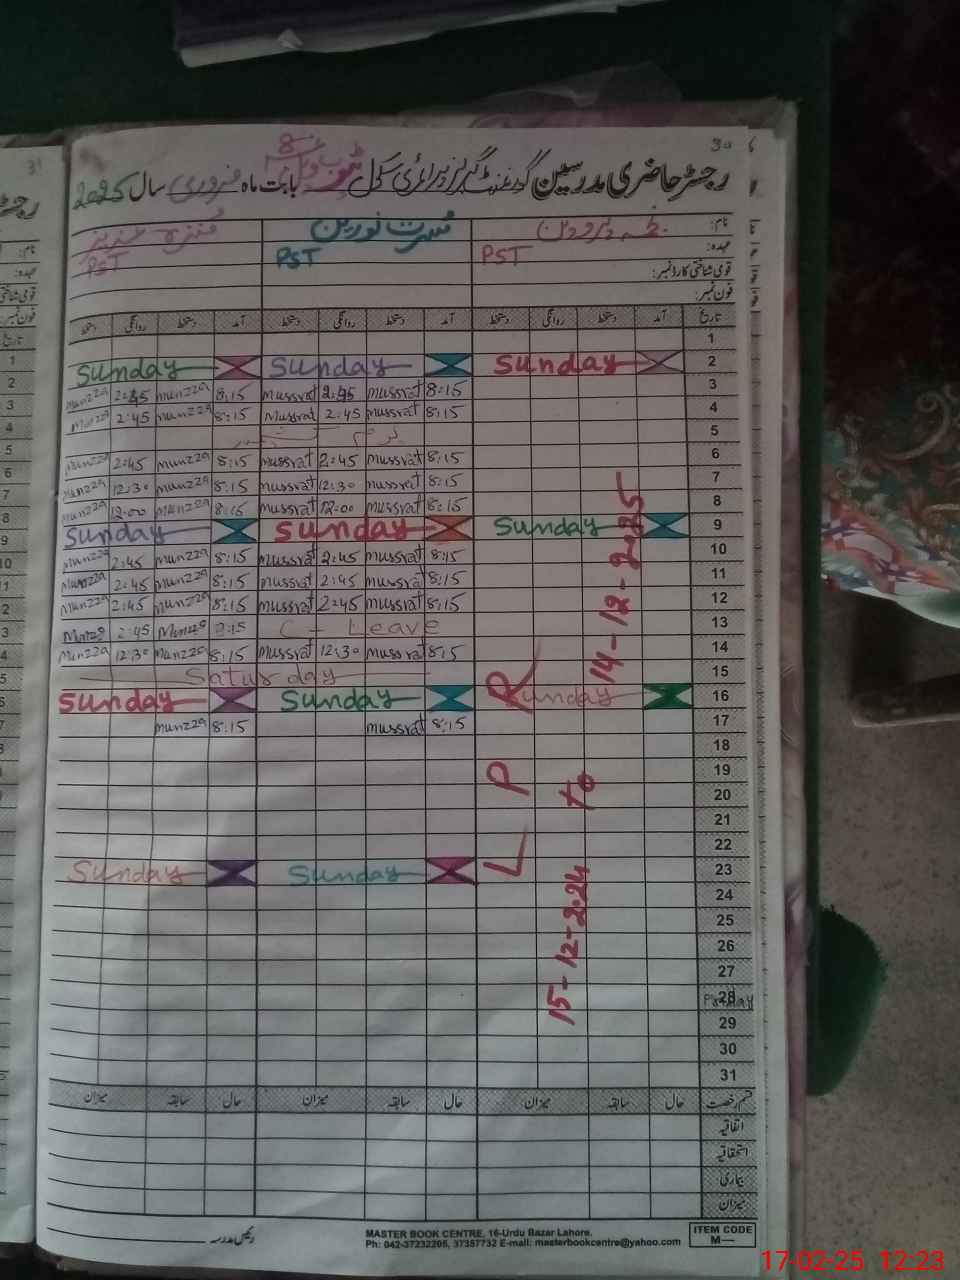 30
رجسٹر حاضری مدرسین گورنمنٹ گرلز پرائمری سکول ٹیوب ویل 8 بابت ماہ فروری سال 2025
نام: پروین مسرت نورین منزہ
عہدہ: PST PST PST
قومی شناختی کارڈ نمبر:
فون نمبر:
تاریخ آمد دستخط روانگی دستخط آمد دستخط روانگی دستخط آمد دستخط روانگی دستخط
1
Sunday Sunday Sunday 2
Munzza 2:45 munzza 8:15 Mussrat 2:45 mussrat 8:15 3
Munzza 2:45 munzza 8:15 Mussrat 2:45 mussrat 8:15 4
5
Munzza 2:45 munzza 8:15 mussrat 2:45 mussrat 8:15 6
Munzza 12:30 Munzza 8:15 mussrat 12:30 mussrat 8:15 7
Munzza 12:00 Munzza 8:15 mussrat 12:00 mussrat 8:15 8
Sunday Sunday Sunday 9
Munzza 2:45 munzza 8:15 Mussrat 2:45 mussrat 8:15 10
Munzza 2:45 munzza 8:15 mussrat 2:45 mussrat 8:15 11
Munzza 2:45 Munzza 8:15 mussrat 2:45 mussrat 8:15 12
2:45 8:15 C - Leave 13
Munzza 12:30 Munzza 8:15 Mussrat 12:30 Mussrat 8:15 14
Saturday 15
Sunday Sunday Sunday 16
munzza 8:15 mussrat 8:15 17
18
19
20
21
22
Sunday Sunday 23
24
25
26
27
28
29
30
31
L P R
15-12-2.24 to 14-12-2.25
قسم رخصت حال سابقہ میزان حال سابقہ میزان حال سابقہ میزان
اتفاقیہ
استحقاقیہ
بیماری
میزان
رئیس مدرسہ
MASTER BOOK CENTRE, 16-Urdu Bazar Lahore.
Ph: 042-37232205, 37357732 E-mail: masterbookcentre@yahoo.com
ITEM CODE
M—
17-02-25 12:23